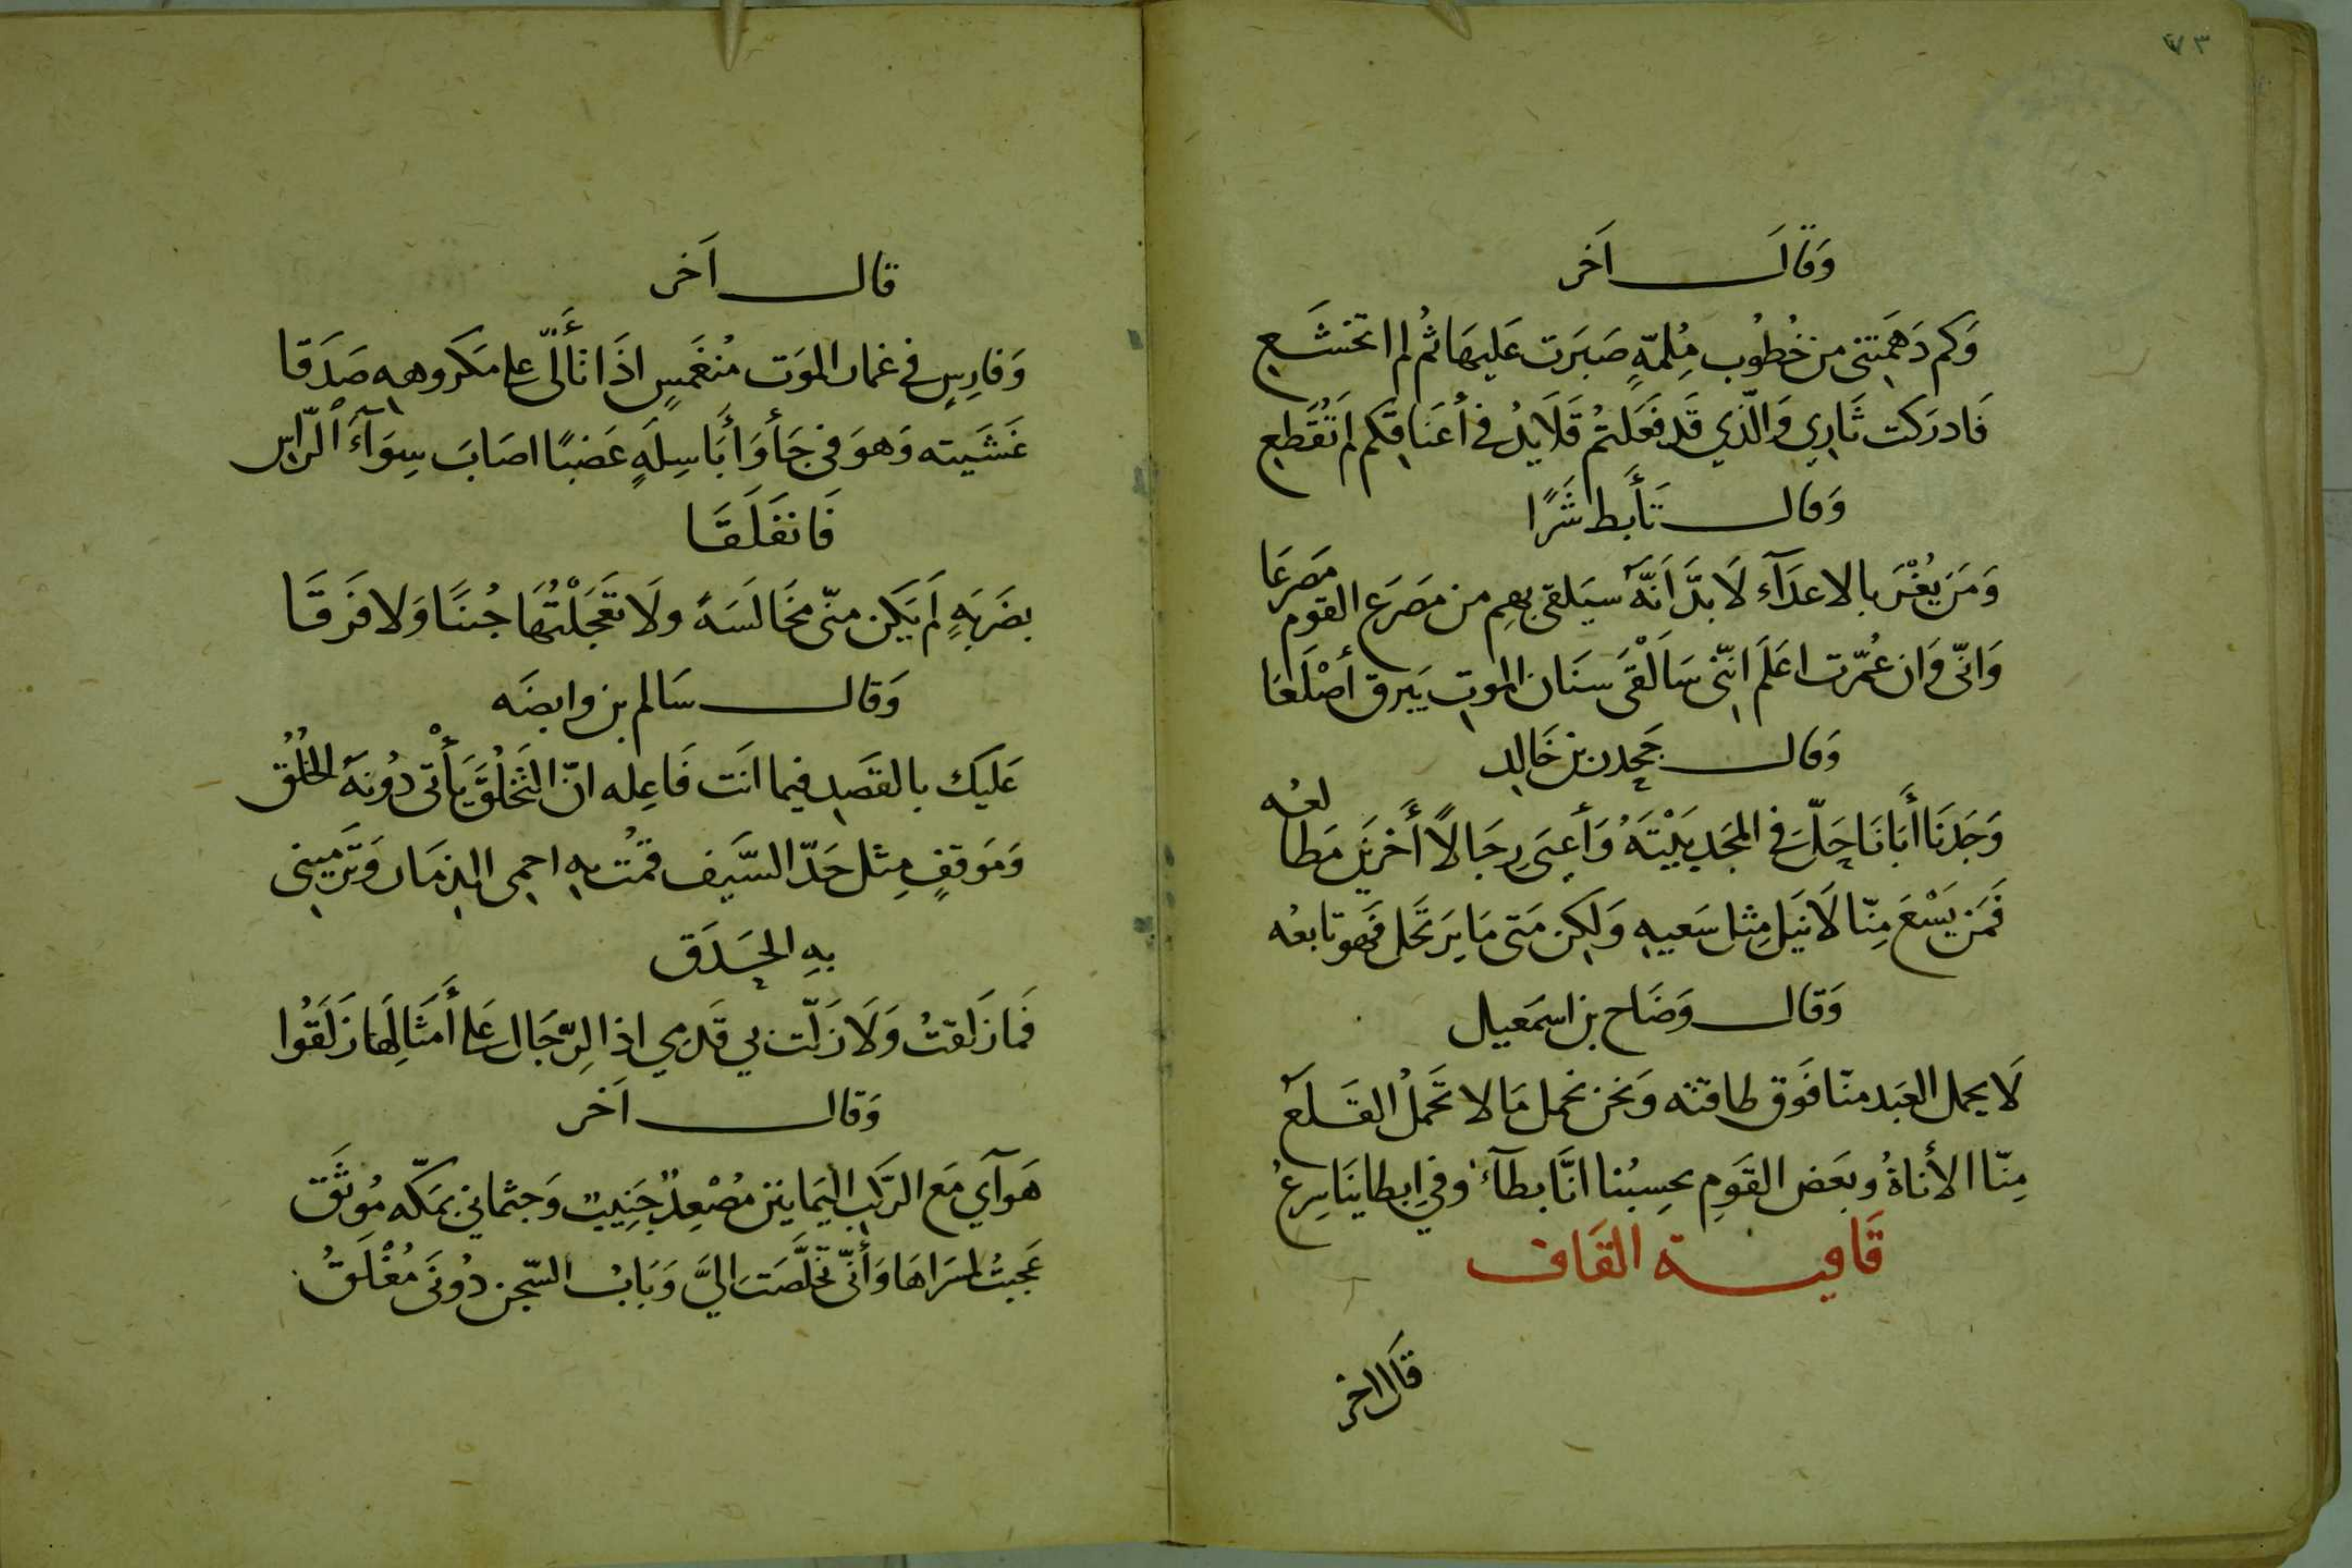 ٧٣
وَقَالَ اَخر
وَكم دَهَمِتنى من خُطُوب مُلِمّةٍ صَبَرَت عَليهَا ثُم لم اتخشَّع
فَادركت ثَارِي وَالّذي قَد فَعَلتمُ قَلَايدُ في أعنَاقكم لم تُقَطعِ
وَقال تَأَبط شَرًا
وَمَن يُغْرَ بالاعدَآء لَا بدَّ اَنّهُ سيَلقى بهِم من مَصَرَع القوم مَصرعَا
وَانّى وَان عُمّرت اعلَم انّنى سَالْقَى سنَان الموتِ يَبرق أصْلَعَا
وَقال جَحدر بن خَالِد
وَجَدنَا أَبَانَا حَلَّ في المجَد بَيْتَهُ وَأَعيَى رِجَالًا أَخَرين مَطالعُه
فَمَن يَسْعَ مِنّا لَا يَنَل مِثل سَعيهِ وَلكِن مَتى مَا يَرتَحل فَهو تابعُه
وَقال وَضَاح بن اسمَعيل
لَا يحمل العَبد منّا فَوَق طاقته وَنحن نحمل مَا لا تَحملُ القَلَعُ
مِنّا الأناةُ وبعَض القَومِ يحسِبُنا انَّا بطآءٌ وفي اِبطاينَا سرعُ
قَافيـة القَاف
قَال اخر
قال اَخر
وَفارِسٍ في غمار الموَت مُنغَمسٍ اذَا تأَلّى على مَكروهه صَدَقا
غَشَيته وَهوَ في جَأوَأ بَاسِلَةٍ عَضبًا اصَابَ سِوَآءَ الرّاس
فَانفَلَقَا
بضَربَةٍ لَم يَكن منّى مخَالَسَةً ولَا تَعَجَلْتُهَا جُبنًا وَلا فَرَقَا
وَقال سَالم بن وابصَه
عَليك بالقَصَدِ فيما انَت فَاعِله انّ التَخَلُقَ يَأتى دُونَهُ الخُلُق
وَمَوَقفٍ مِثل حَدّ السَّيَف قمُت بهِ احمِى الذِمَار وَتَرمِينى
بهِ الحَدَق
فَمَا زَلقتُ وَلَا زَلّت بي قَدَمي اذا الرِّجَال عَلى أَمثَالِهَا زَلَقُوا
وَقال اَخَر
هَوآي مَع الرَكب اليَمَاينن مُصْعِدٌ جَنِيبٌ وَجثماني بمَكّه مُوثَق
عَجبتُ لمسَراهَا وَأَنّى تَخَلَّصَت الِيَّ وَبَابُ السّجن دُونىَ مُغْلَقُ